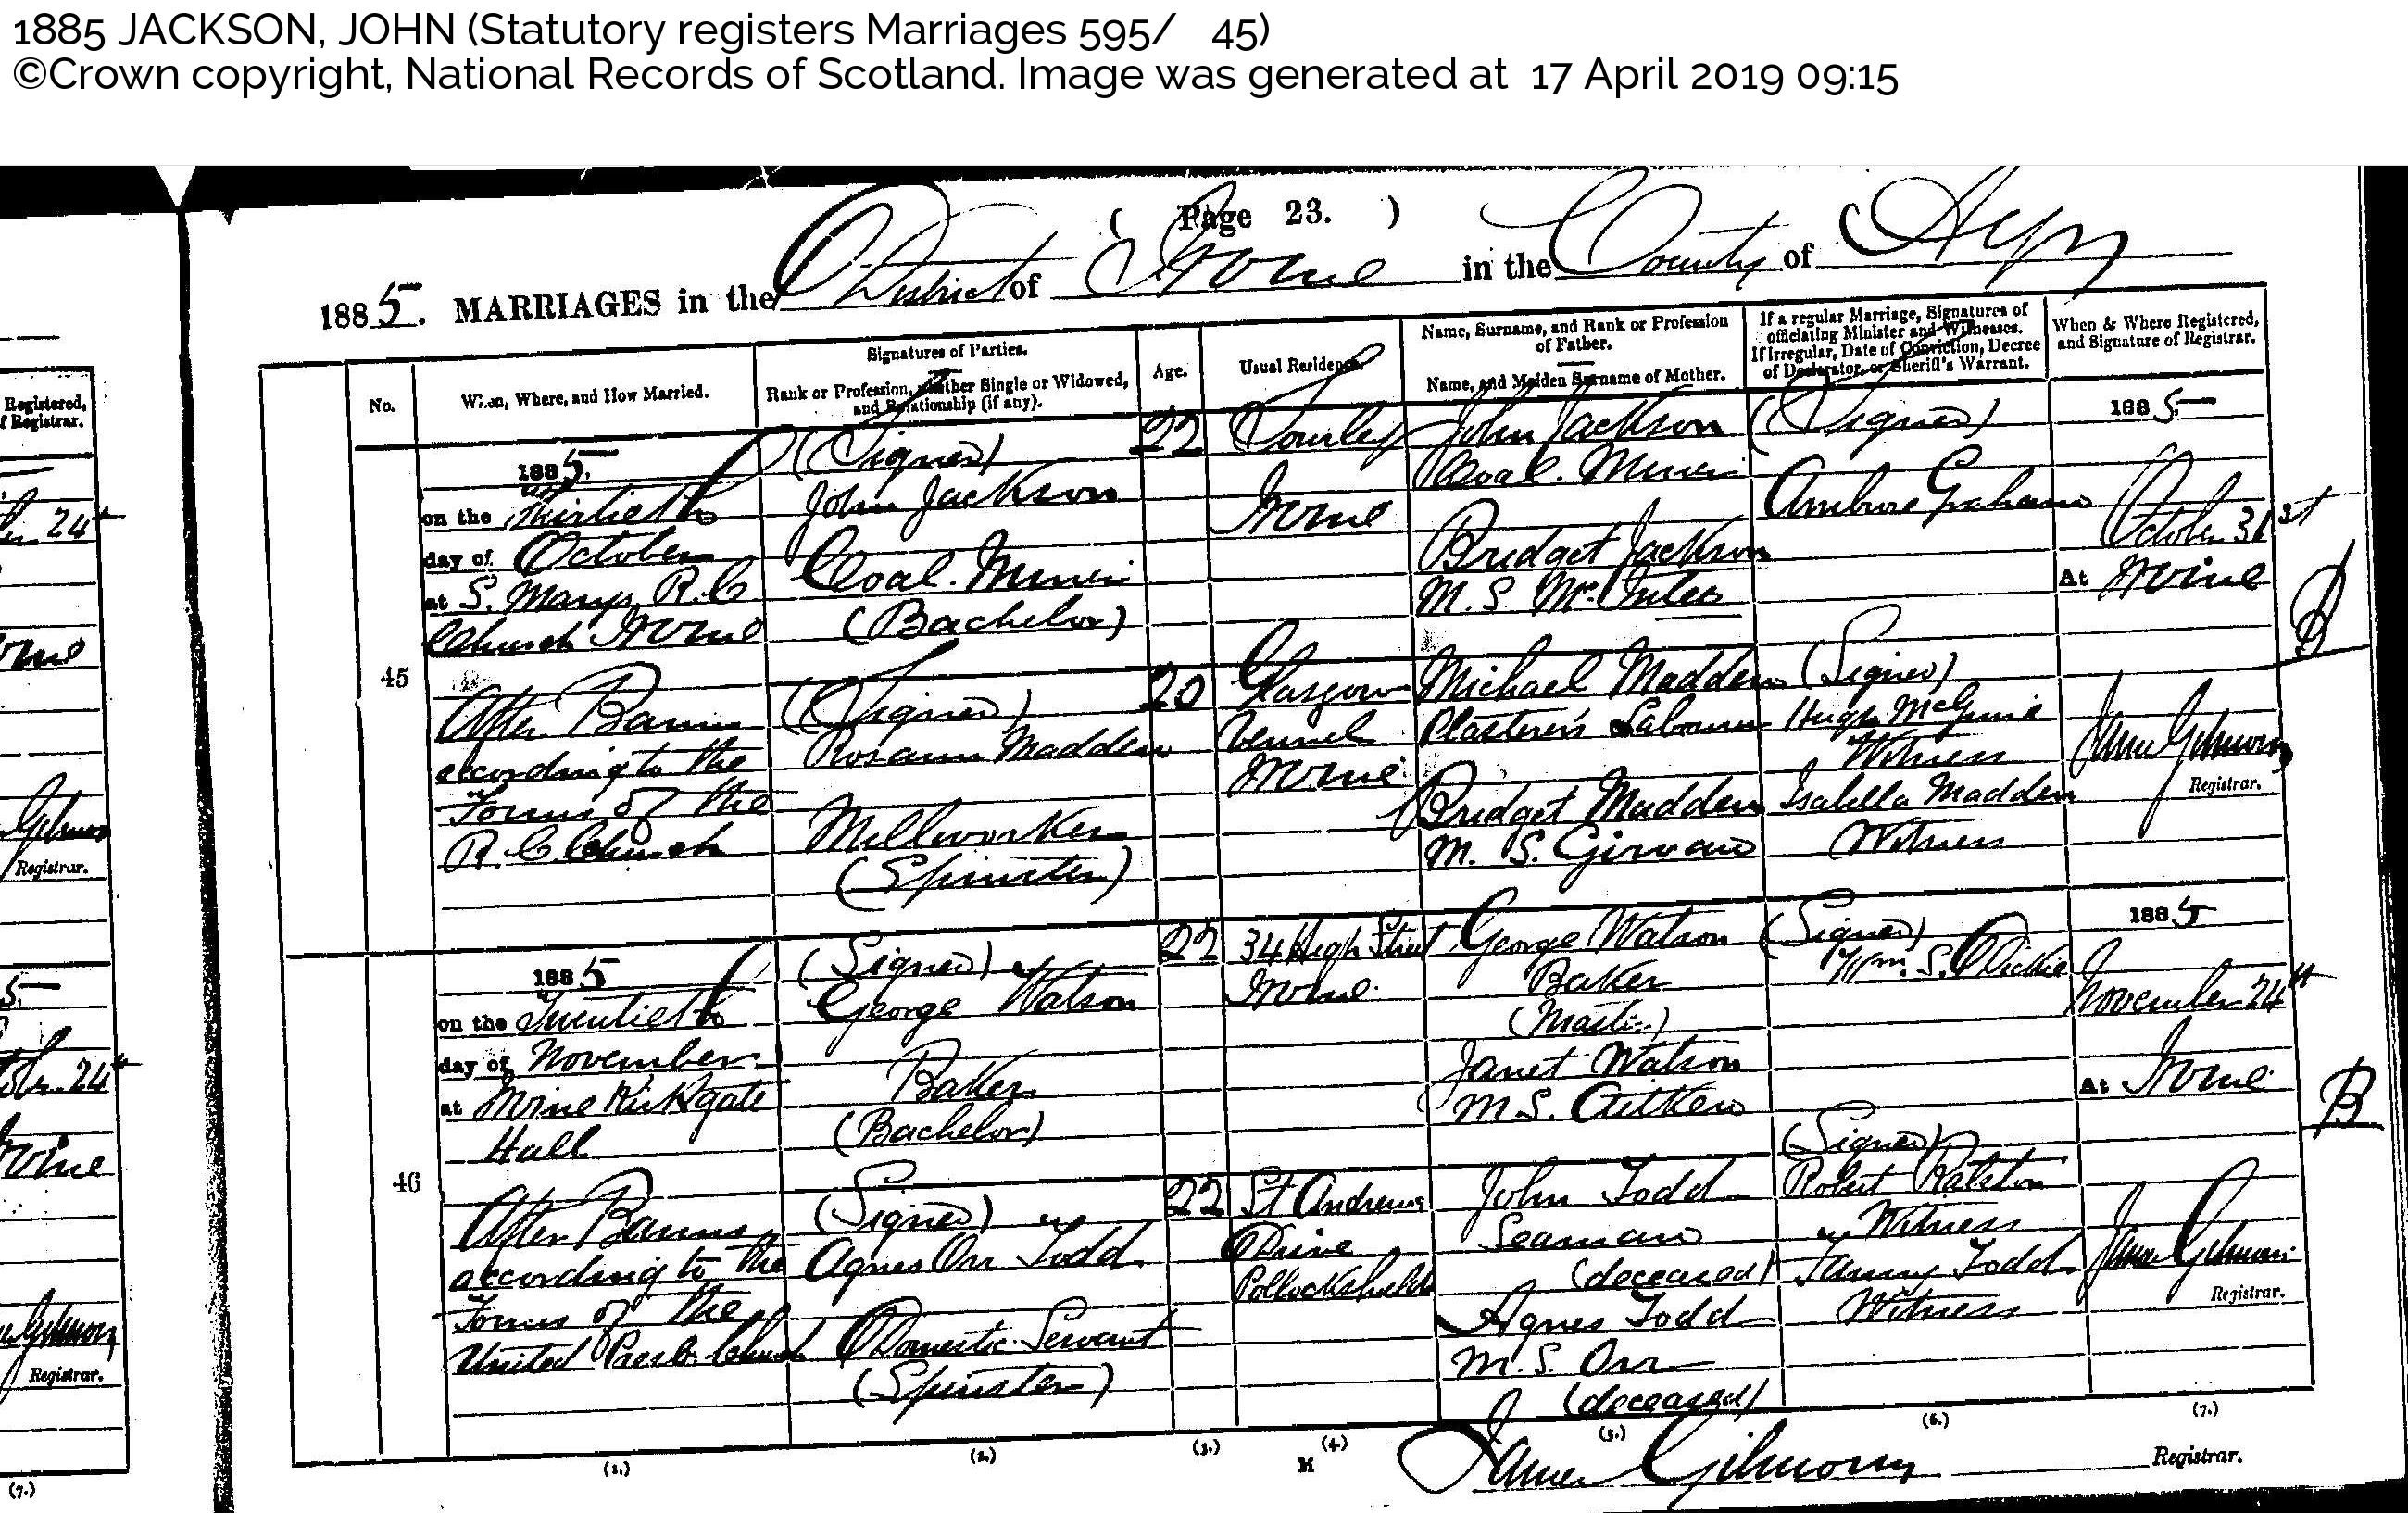 1885 JACKSON, JOHN (Statutory registers Marriages 595/ 45)
©Crown copyright, National Records of Scotland. Image was generated at 17 April 2019 09:15
( Page 23. )
1885. MARRIAGES in the District of Irvine in the County of Ayr
Registered,
of Registrar.
No.
When, Where, and How Married.
Signatures of Parties.
Rank or Profession, whether Single or Widowed,
and Relationship (if any).
Age.
Usual Residence.
Name, Surname, and Rank or Profession
of Father.
Name, and Maiden Surname of Mother.
If a regular Marriage, Signatures of
officiating Minister and Witnesses.
If Irregular, Date of Conviction, Decree
of Declarator, or Sheriff's Warrant.
When & Where Registered,
and Signature of Registrar.
45
1885.
on the Thirtieth
day of October
at S. Marys R.C
Church Irvine
After Banns
according to the
Forms of the
R.C. Church
(Signed)
John Jackson
Coal. Miner
(Bachelor)
(Signed)
Rosann Madden
Millworker
(Spinster)
22
20
Irvine
Glasgow
Vennel
Irvine
John Jackson
Coal. Miner
Bridget Jackson
M.S.
Michael Madden
Plasterer's Labourer
Bridget Madden
M. S. Girvan
(Signed)
Graham
(Signed)
Hugh McGuire
Witness
Isabella Madden
Witness
1885
October 31st
At Irvine
James Gilmour
Registrar.
46
1885
on the Twentieth
day of November
at Irvine Kirkgate
Hall
After Banns
according to the
Forms of the
United Presb. Church
(Signed)
George Watson
Baker
(Bachelor)
(Signed)
Agnes Orr Todd
Domestic Servant
(Spinster)
22
22
34 High Street
Irvine.
St Andrews
Drive
Pollockshields
George Watson
Baker
(Master)
Janet Watson
M.S. Aitken
John Todd
Seaman
(deceased)
Agnes Todd
M.S. Orr
(deceased)
(Signed)
Wm. S. Dickie
(Signed)
Robert Ralston
Witness
Todd
Witness
1885
November 24th
At Irvine
B
James Gilmour
Registrar.
(1.)
(2.)
(3.)
(4.)
(5.)
(6.)
(7.)
M
James Gilmour Registrar.
24th
Irvine
Gilmour
Registrar.
24th
Irvine
Gilmour
Registrar.
(7.)